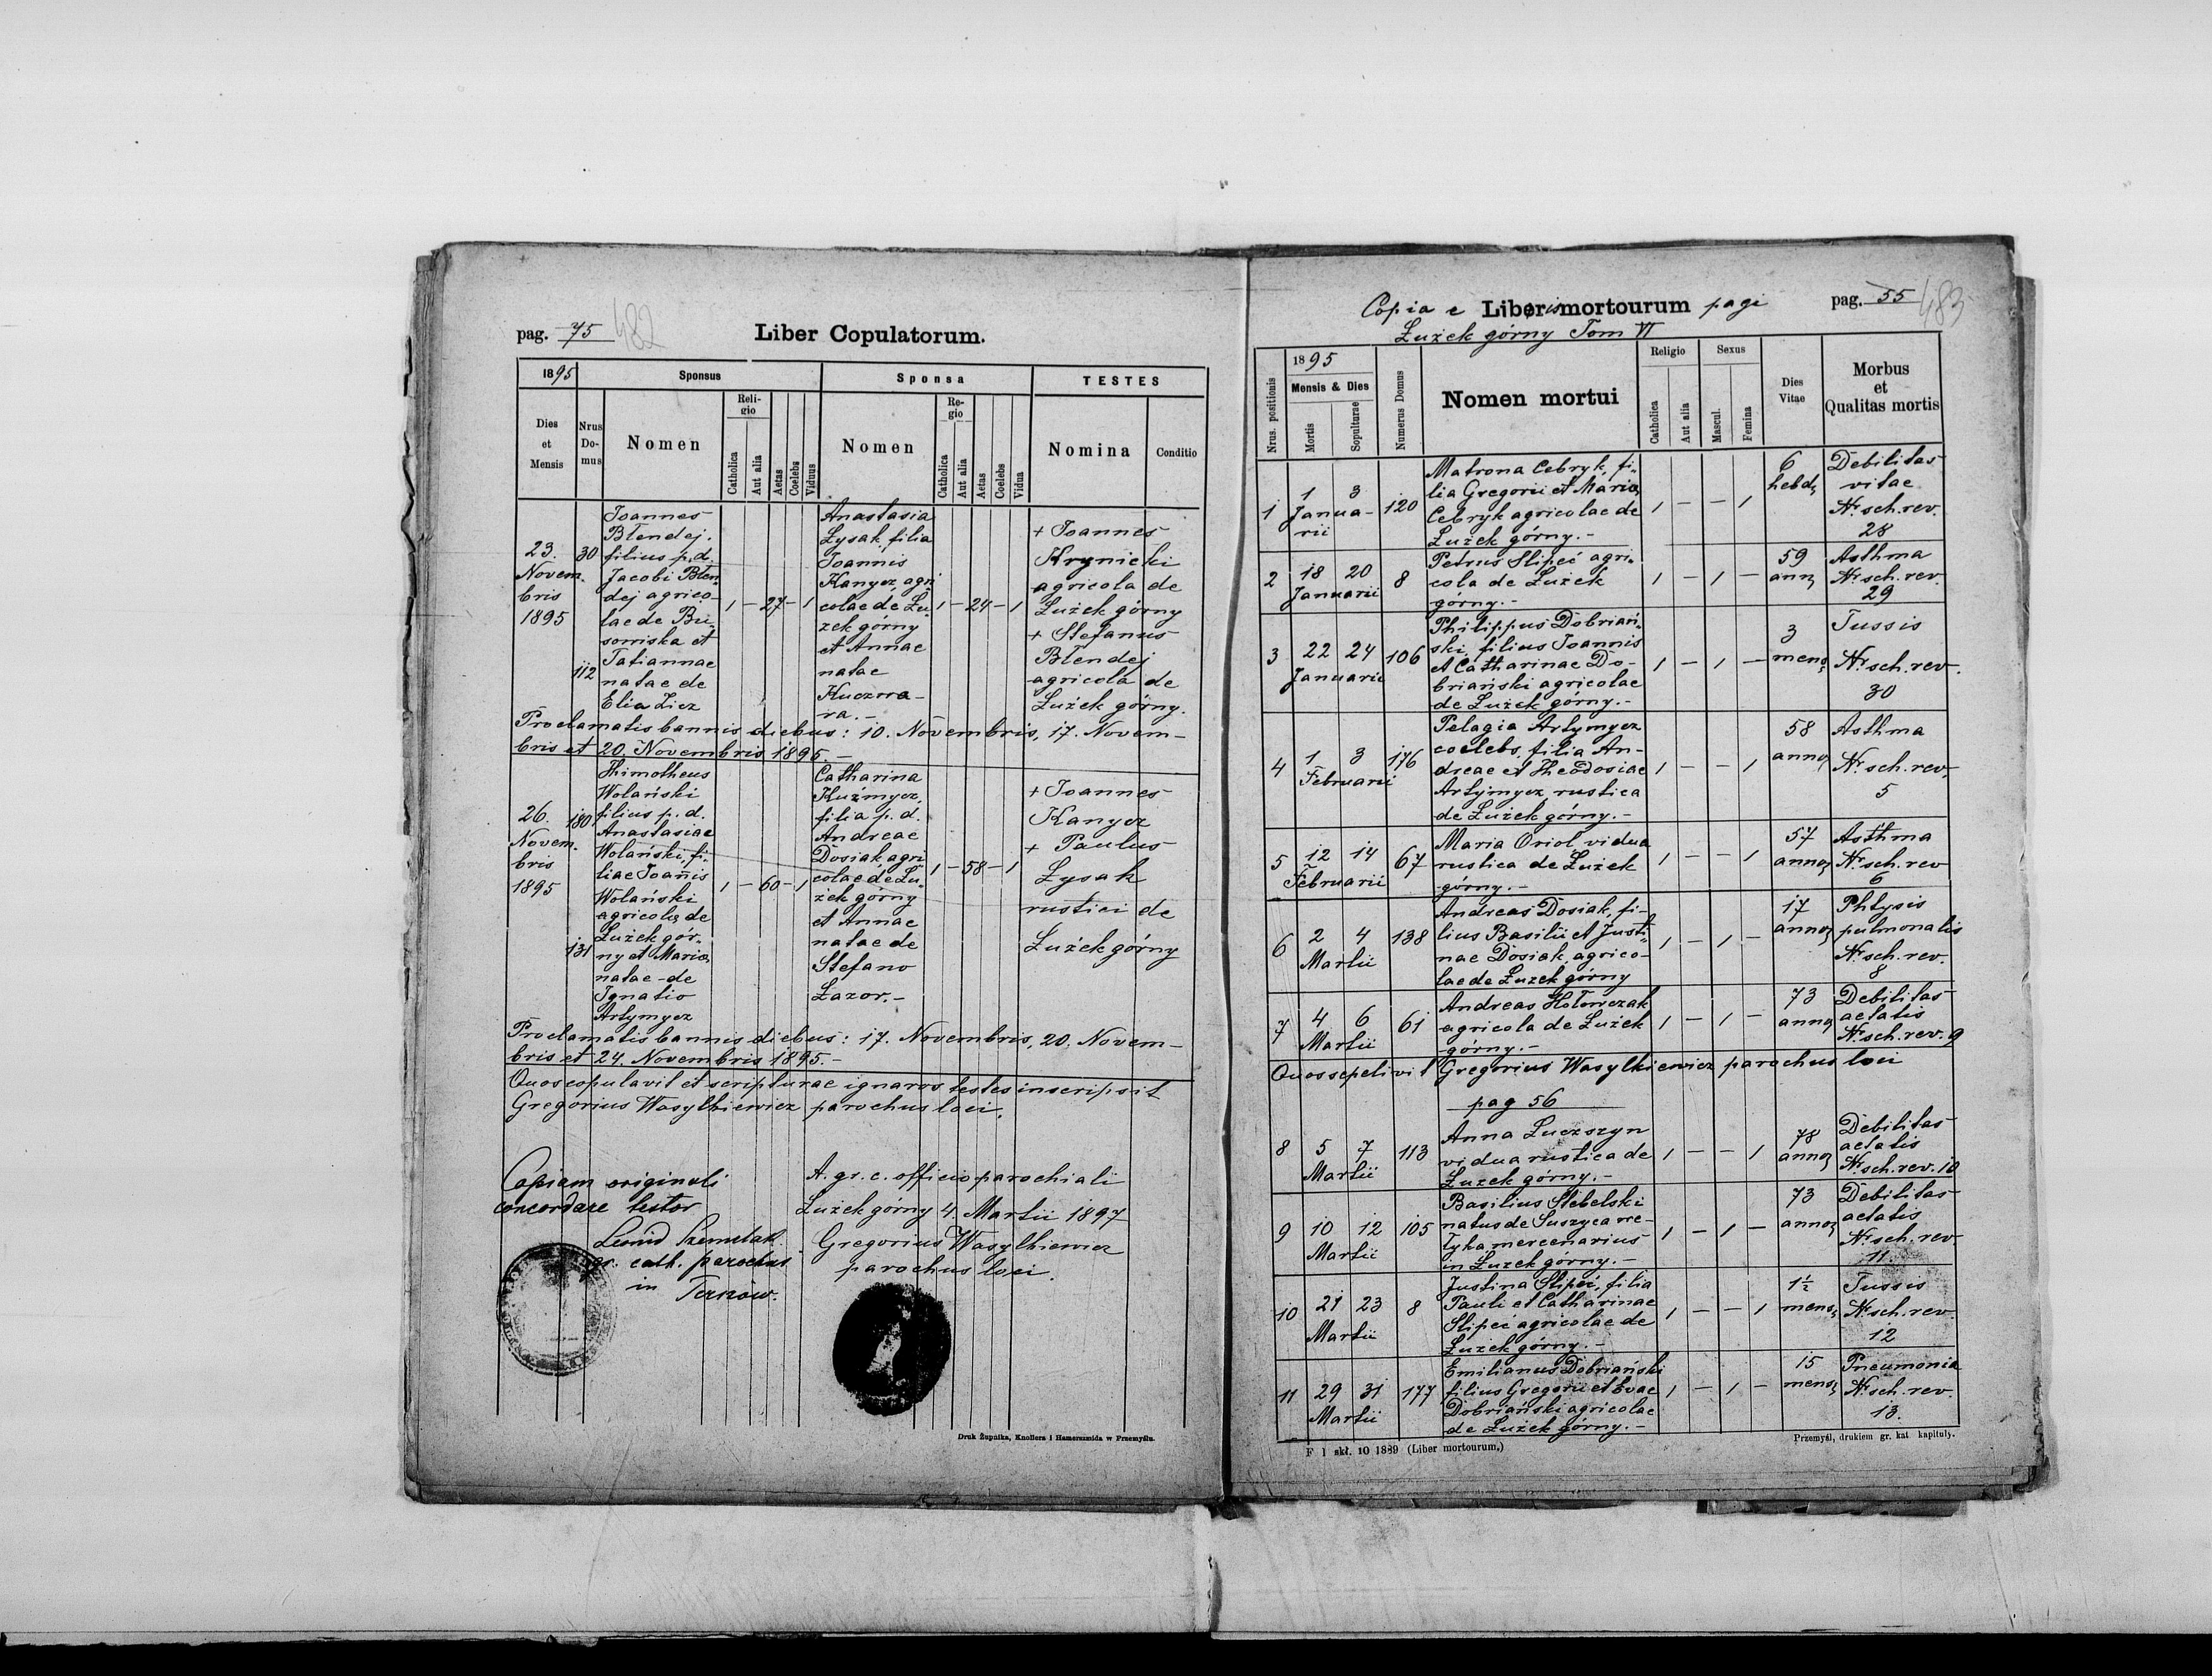 pag. 75 482
Liber Copulatorum.
1895
Sponsus
Sponsa
TESTES
Dies et Mensis
Nrus Do-mus
Nomen
Reli-gio
Catholica
Aut alia
Aetas
Coelebs
Viduus
Nomen
Re-gio
Catholica
Aut alia
Aetas
Coelebs
Vidua
Nomina
Conditio
23.
Novem.
bris
1895
30
112
Joannes
Błendej.
filius p. d.
Jacobi Błen
dej agrico-
lae de Bu-
soniska et
Tatiannae
natae de
Elia Licz
1 – 27 – 1
Anastasia
Łysak, filia
Joannis
Kanycz agri
colae de Łu-
żek górny
et Annae
natae
Kuczwa-
ra. –
1 – 24 – 1
+ Joannes
Krynicki
agricola de
Łużek górny
+ Stefanus
Błendej
agricola de
Łużek górny.
Proclamatis bannis diebus: 10. Novembris, 17. Novem-
bris et 20. Novembris 1895. –
26.
Novem.
bris
1895
180
131
Thimotheus
Wolański
filius p. d.
Anastasiae
Wolański, fi-
liae Joanis
Wolański
agricolae de
Łużek gór-
ny et Maria
natae de
Ignatio
Artymycz
1 – 60 – 1
Catharina
Kuźmycz,
filia p. d.
Andreae
Dosiak agri
colae de Łu-
żek górny
et Annae
natae de
Stefano
Łazor. –
1 – 58 – 1
+ Joannes
Kanycz
+ Paulus
Łysak
rustici de
Łużek górny
Proclamatis bannis diebus: 17. Novembris, 20. Novem-
bris et 24. Novembris 1895. –
Quos copulavit et scripturae ignaros testes inscripsit
Gregorius Wasylkiewicz parochus loci.
Copiam originali
concordare testor
gr. cath. parochus
in
A. gr. c. officio parochiali
Łużek górny 4. Martii 1897
Gregorius Wasylkiewicz
parochus loci.
Druk Żupnika, Knollera i Hamerszmida w Przemyślu.
Copia e Liberis mortourum pagi
Łużek górny Tom VI
pag. 55 483
Nrus. positionis
1895
Mensis & Dies
Mortis
Sepulturae
Numerus Domus
Nomen mortui
Religio
Catholica
Aut alia
Sexus
Mascul.
Femina
Dies Vitae
Morbus
et
Qualitas mortis
1
1 3
Janua-
rii
120
Matrona Cebryk, fi-
lia Gregorii et Maria
Cebryk agricolae de
Łużek górny. –
1 – – 1
6
hebd
Debilitas
vitae
Nr. sch. rev.
28
2
18 20
Januarii
8
Petrus Slipeć agri-
cola de Łużek
górny. –
1 – 1 –
59
ann
Asthma
Nr. sch. rev.
29
3
22 24
Januarii
106
Philippus Dobriań-
ski, filius Joannis
et Catharinae Do-
briański agricolae
de Łużek górny. –
1 – 1 –
3
mens
Tussis
Nr. sch. rev.
30
4
1 3
Februarii
176
Pelagia Artymycz
coelebs, filia An-
dreae et Theodosiae
Artymycz rustica
de Łużek górny. –
1 – – 1
58
anno
Asthma
Nr. sch. rev.
5
5
12 14
Februarii
67
Maria Oriol vidua
rustica de Łużek
górny. –
1 – – 1
57
anno
Asthma
Nr. sch. rev
6
6
2 4
Martii
138
Andreas Dosiak, fi-
lius Basilii et Justi-
nae Dosiak, agrico-
lae de Łużek górny
1 – 1 –
17
anno
Phtysis
pulmonalis
Nr. sch. rev.
8
7
4 6
Martii
61
Andreas Hołowczak
agricola de Łużek
górny. –
1 – 1 –
73
anno
Debilitas
aetatis
Nr. sch. rev. 9
Quos sepelivit Gregorius Wasylkiewicz parochus loci
pag 56
8
5 7
Martii
113
Anna Łuczszyn
vidua rustica de
Łużek górny. –
1 – – 1
78
anno
Debilitas
aetatis
Nr. sch. rev. 10
9
10 12
Martii
105
Basilius Stebelski
natus de Suszyca we-
łyka mercenarius
in Łużek górny. –
1 – 1 –
73
anno
Debilitas
aetatis
Nr. sch. rev.
11.
10
21 23
Martii
8
Justina Slipeć, filia
Pauli et Catharinae
Slipeć agricolae de
Łużek górny. –
1 – – 1
1½
mens
Tussis
Nr. sch. rev
12
11
29 31
Martii
177
Emilianus Dobriański
filius Gregorii et Evae
Dobriański agricolae
de Łużek górny. –
1 – 1 –
15
mens
Pneumonia
Nr. sch. rev.
13.
F 1 skł. 10 1889 (Liber mortourum.)
Przemyśl, drukiem gr. kat kapituły.